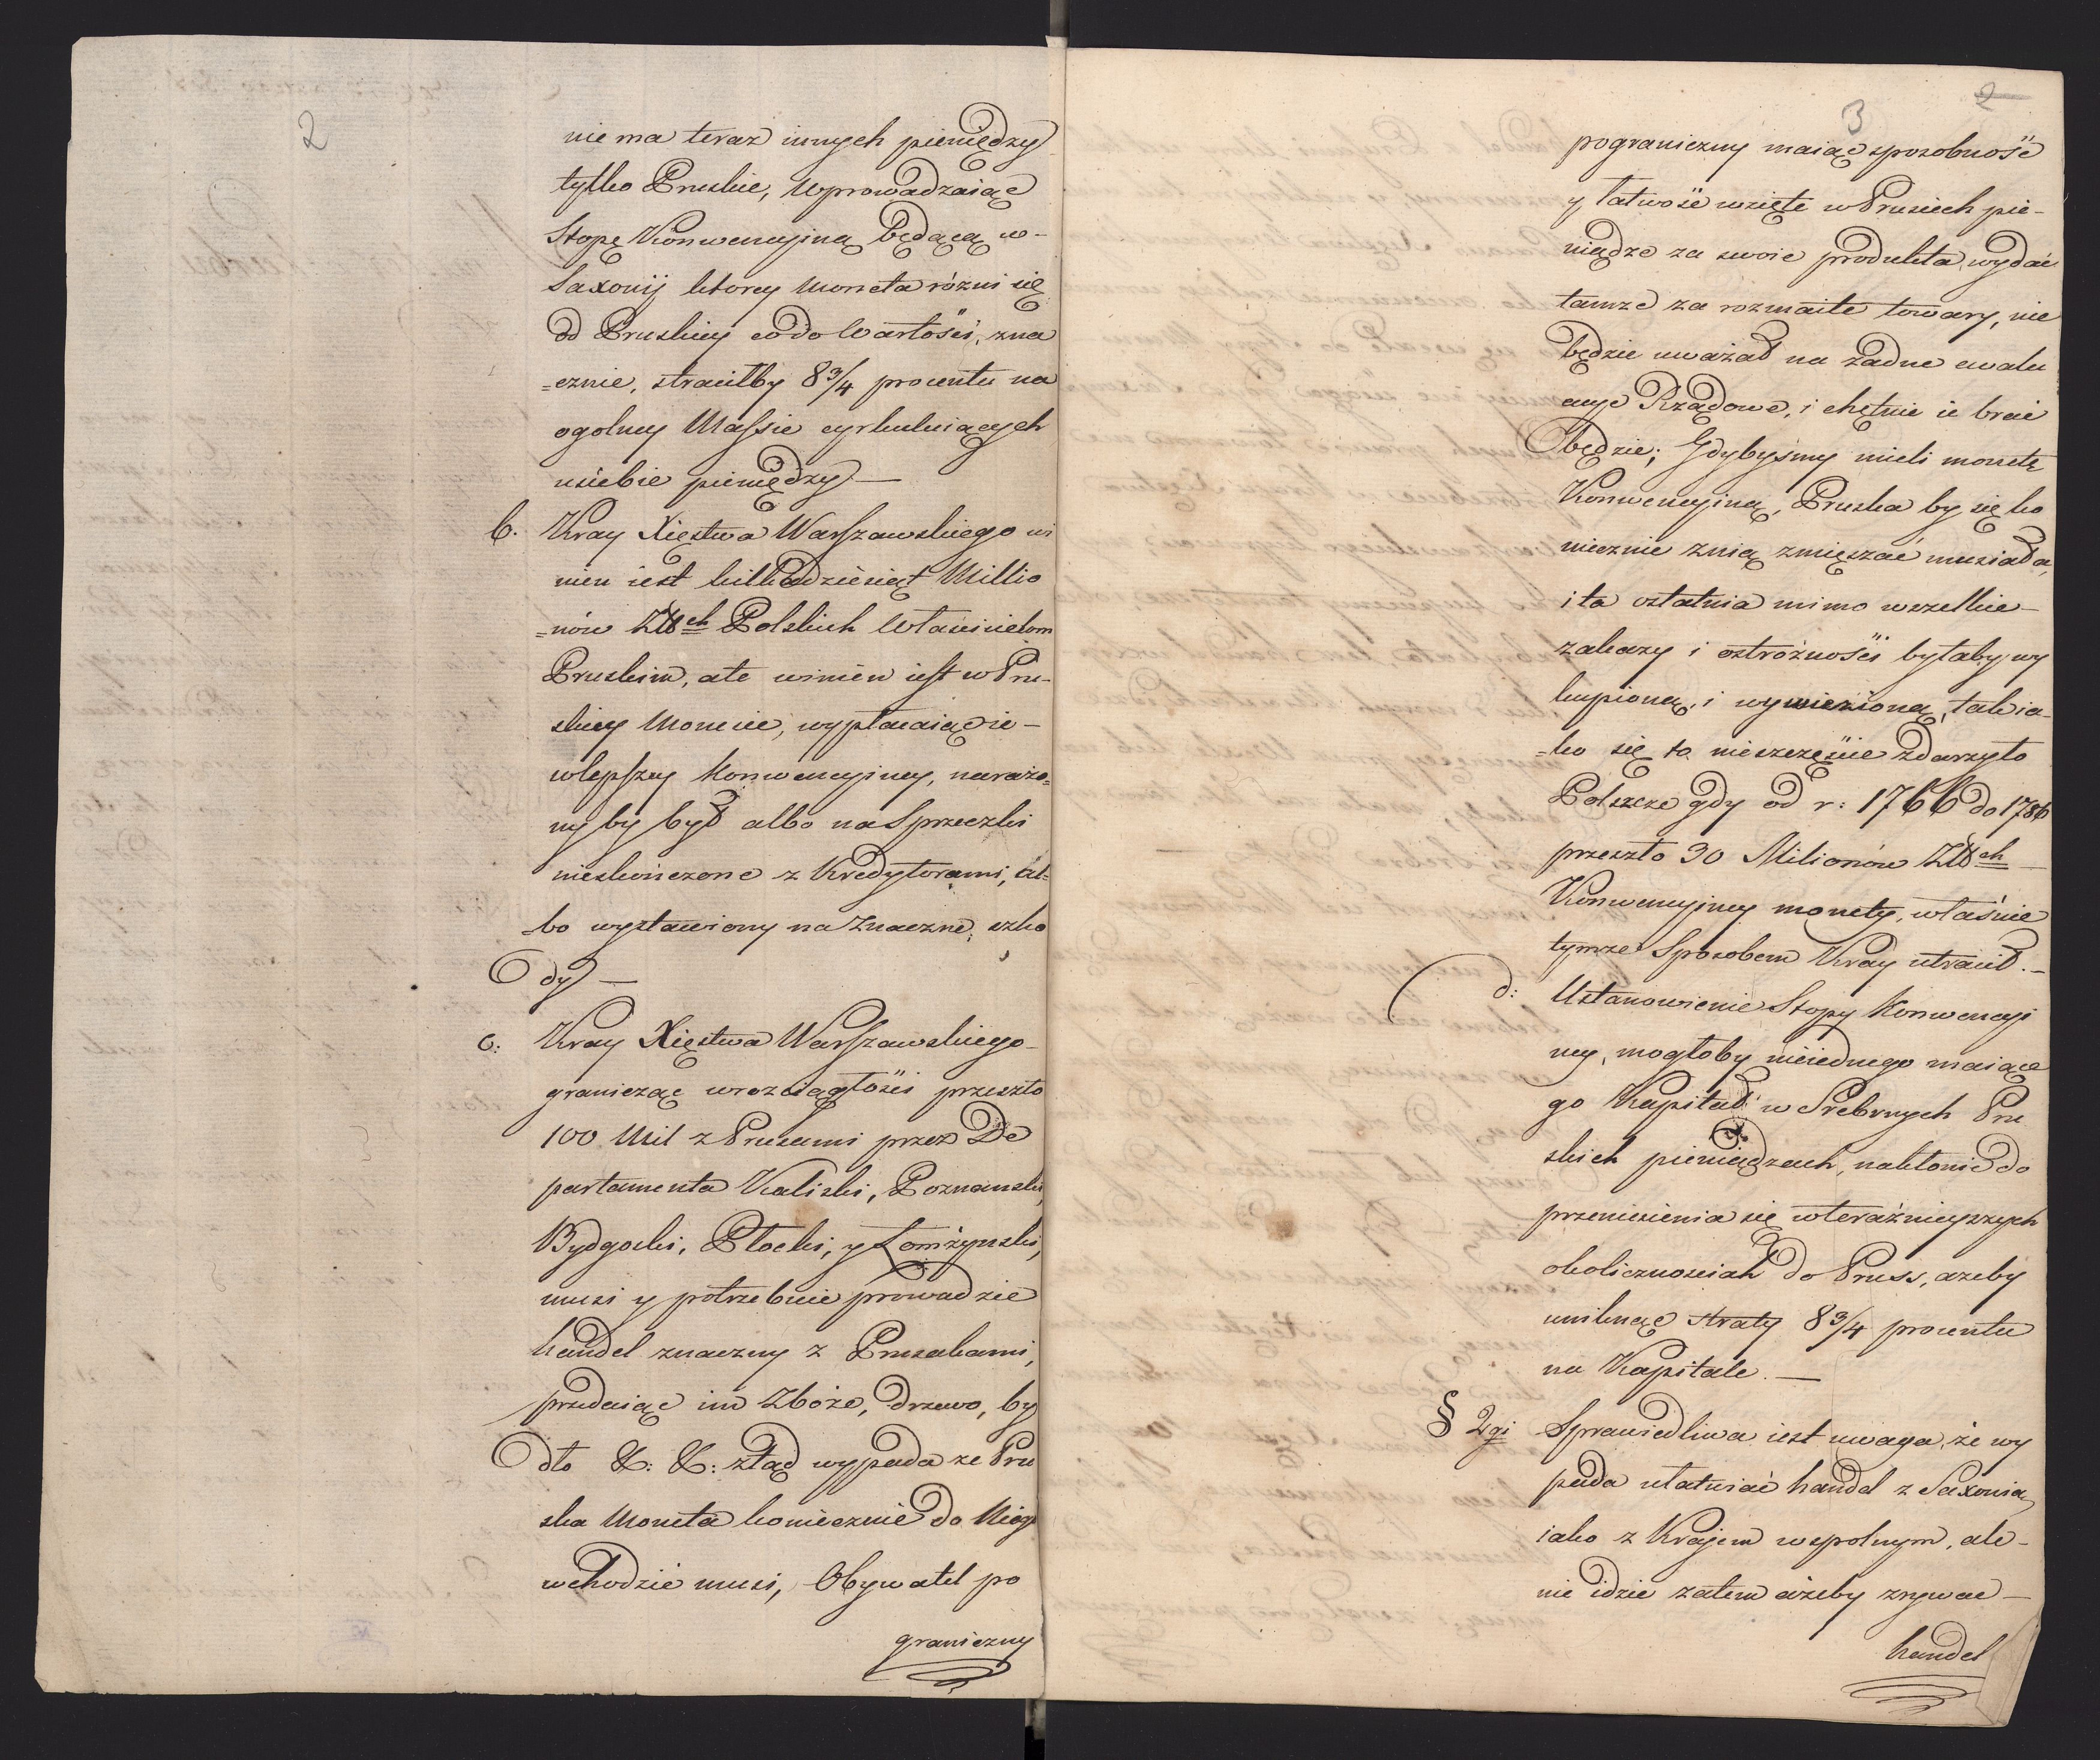 2
nie ma teraz innych pieniędzy
tylko Pruskie, wprowadzaiąc
Stopę Konwencyiną będącą w-
Saxonij ktorey Moneta rózni się
od Pruskiey co do Wartości, zna
=cznie, straciłby 8 3/4 procentu na
ogolney Massie cyrkuluiących
u siebie pieniędzy. —
b. Kray Xięstwa Warszawskiego wi
nien iest kilkadziesiąt Millio
=nów Złłch Polskich Właścicielom
Pruskim, ale winien iest w Pru-
skiey Monecie, wypłacaiąc ie —
w lepszey Konwencyiney, narażo=
ny by był albo na Sprzeczki
nieskończone z Kredytorami, al=
bo wystawiony na Znaczne szko
dy —
c: Kray Xięstwa Warszawskiego —
granicząc w rozciągłości przeszło
100 Mil z Prusami przez De
partamenta Kaliski, Poznanski,
Bydgocki, Płocki, y Łomżynski,
musi y potrzebnie prowadzić
handel znaczny z Prusakami,
przedaiąc im Zboże, drzewo, by
dło &: &: ztąd wypada ze Pru
ska Moneta koniecznie do Niego
wchodzić musi, Obywatel po
graniczny
2
3
pograniczny maiąc sposobność
y łatwość wzięte w Prusiech pie-
niądze za swoie produkta, wydać
tamze za rozmaite towary, nie
będzie uważał na żadne ewalu
acye Rządowe, i chętnie ie brać
będzie; Gdybyśmy mieli monetę
Konwencyiną, Pruska by się ko
niecznie z nią zmięszać musiała,
i ta ostatnia mimo wszelkie —
zakazy i ostróżności byłaby wy
kupioną, i wywiezioną, tak ia-
=ko się to nieszczęście zdarzyło
Polszcze gdy od r: 1766 do 1786
przeszło 30 Milionów Złłch —
Konwencyiney monety, właśnie
tymze Sposobem Kray utracił. —
d: Ustanowienie Stopy Konwencyi
ney, mogłoby nieiednego maiące
go Kapitał w Srebrnych Pru
skich pieniądzach, nakłonić do
przeniesienia się w teraźnieyszych
okolicznosciah do Pruss, azeby
uniknąć straty 8 3/4 procentu
na Kapitale. —
§ 2gi Sprawiedliwa iest uwaga, że wy
pada ułatwiać handel z Saxonią,
iako z Krajem wspolnym, ale —
nie idzie zatem ażeby zrywać —
handel